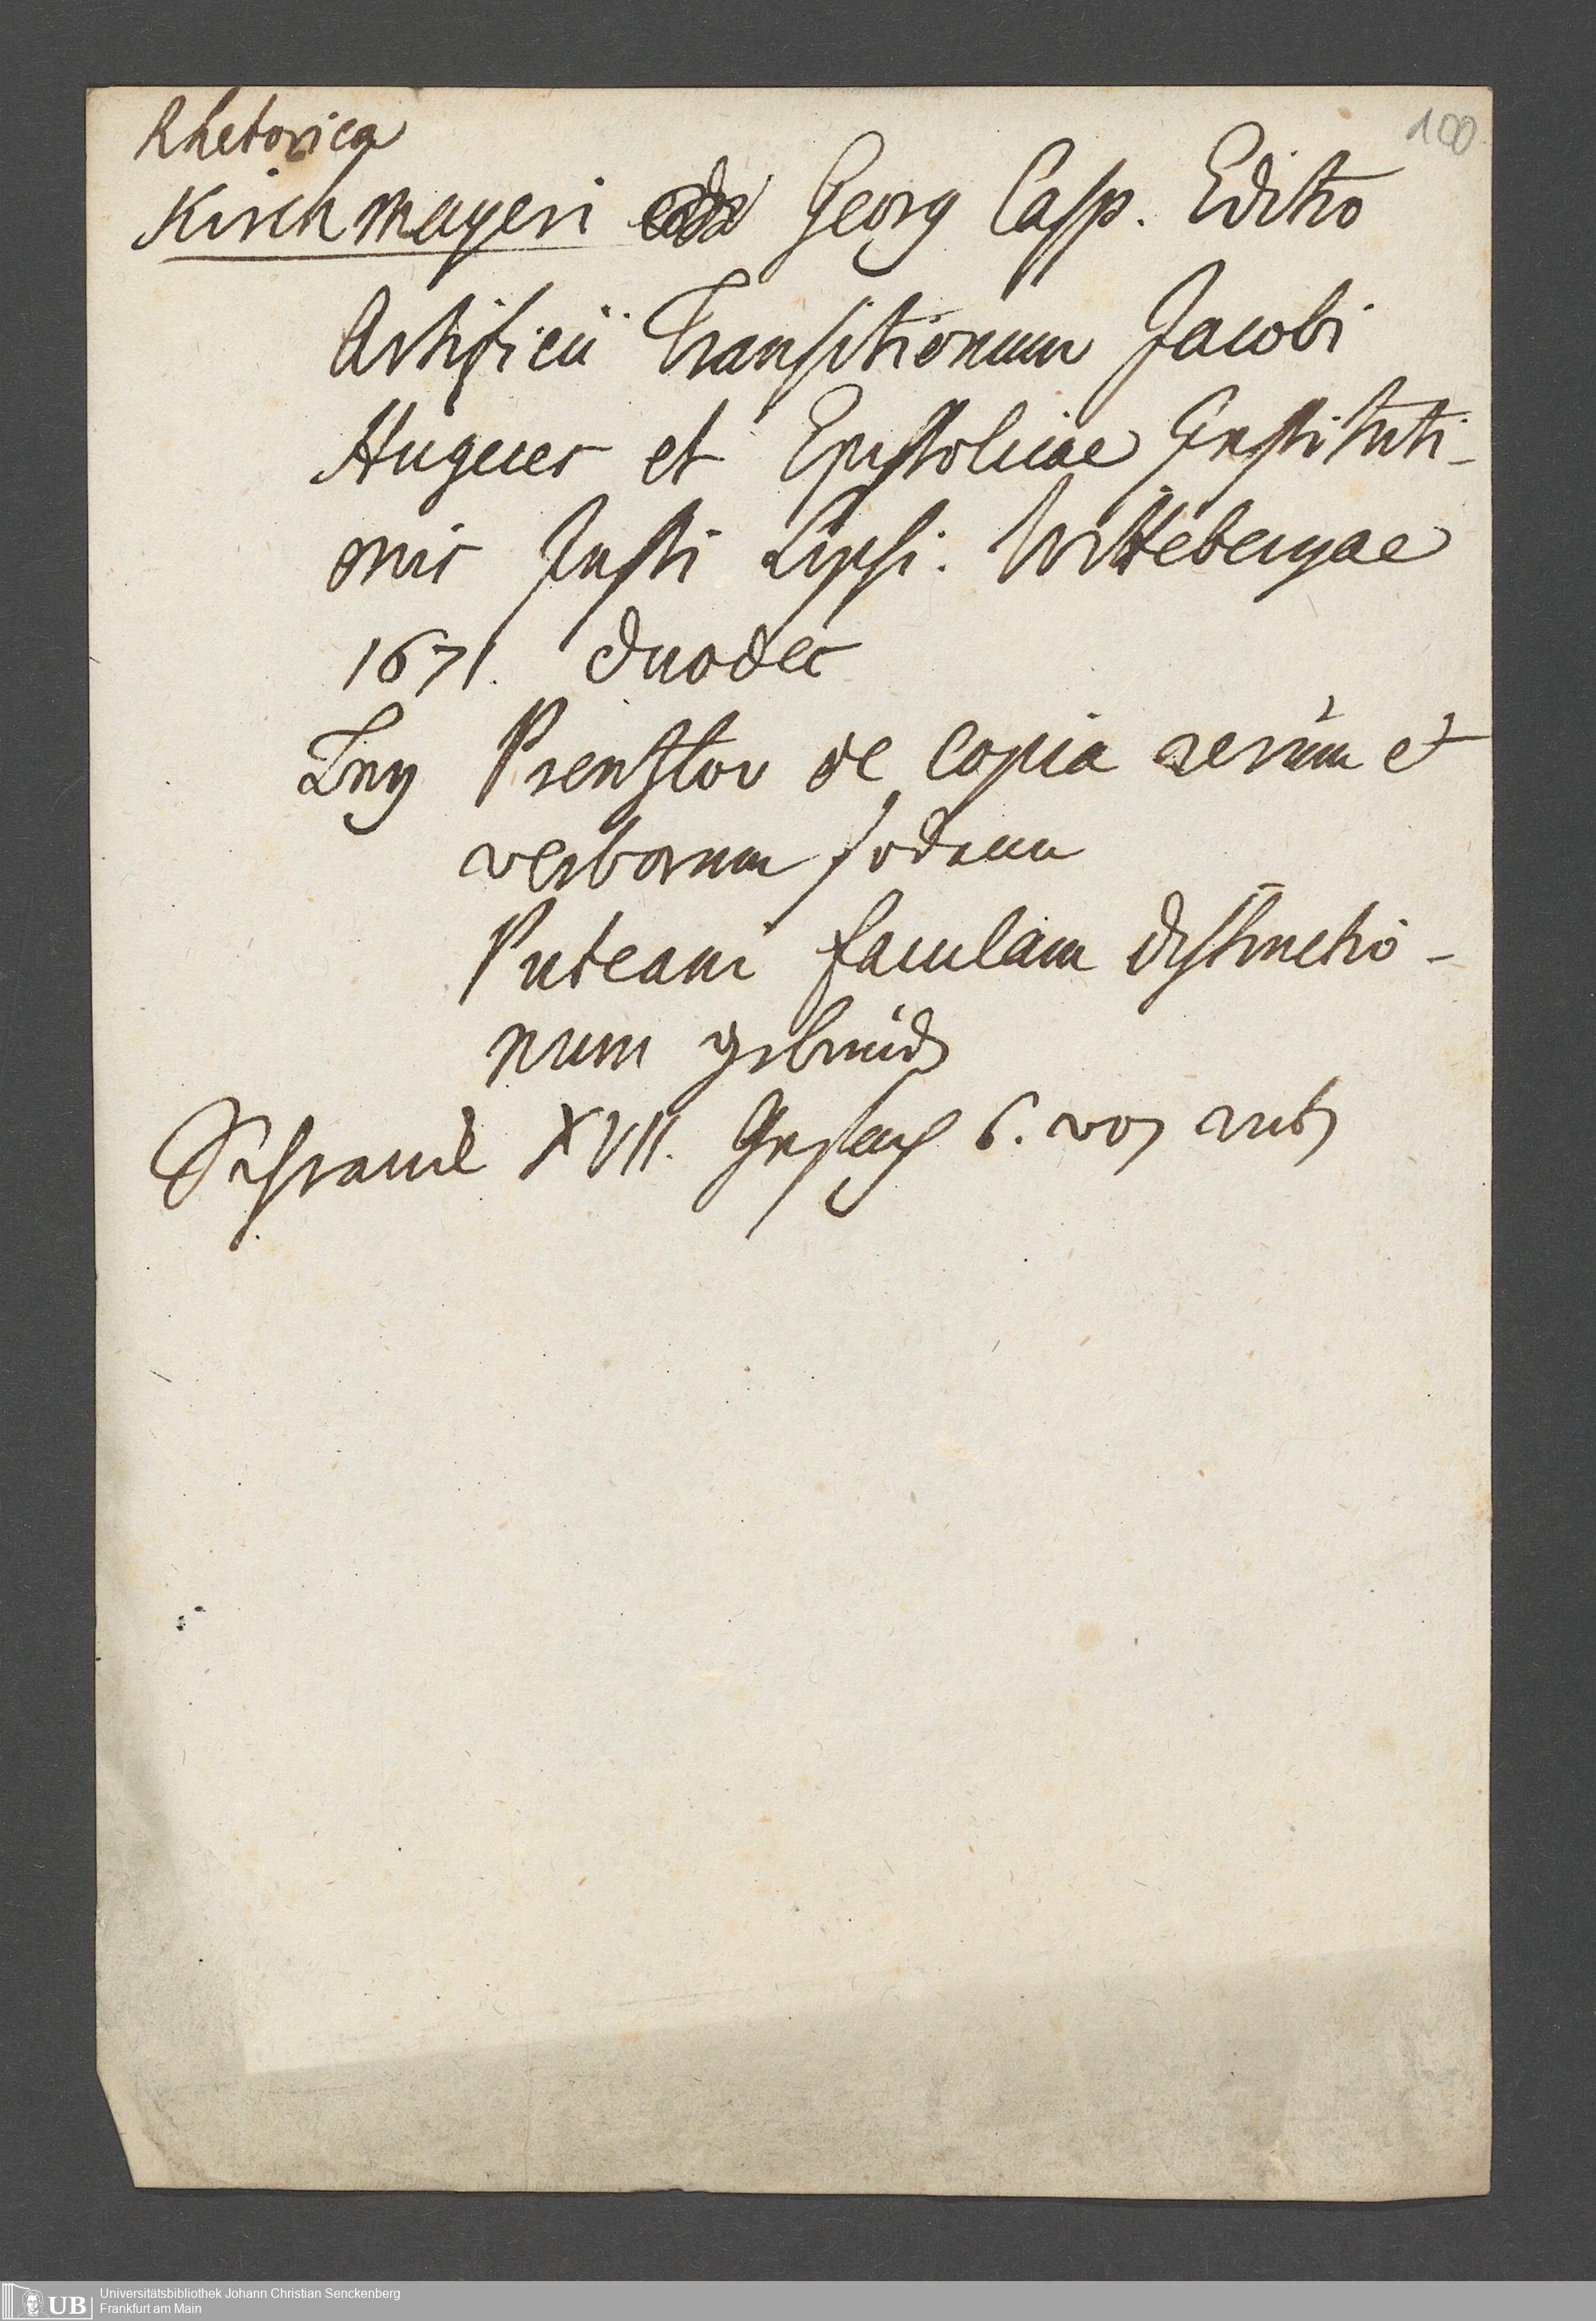 Rhetorica
100
Kirchmayeri Georg Casp. Editio
Artificii Transitionum Jacobi
Hugues et Epistolicae Instituti-
onis Justi Lipsi. Wittebergae
1671. duodec
de copia rerum et
verborum sodann
Puteani faculam distinctio-
num gebund
Schrank XVII. Gefach 6. von unt
Universitätsbibliothek Johann Christian Senckenberg
Frankfurt am Main
UB